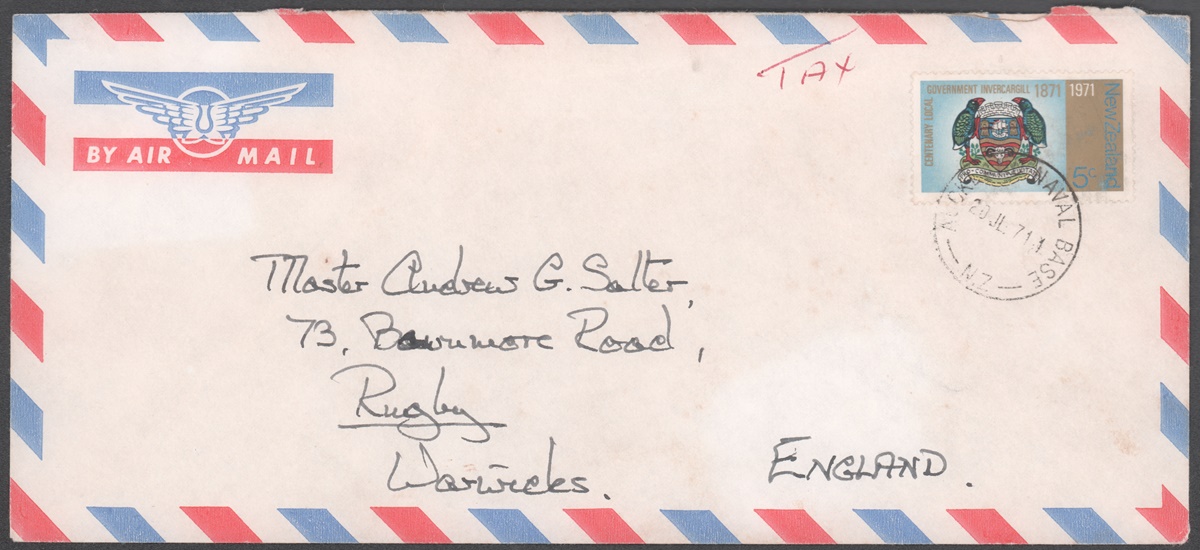 TAX
BY AIR MAIL
CENTENARY LOCAL GOVERNMENT INVERCARGILL 1871 1971
New Zealand
5c
NAVAL BASE
20 JL 71
NZ
Master Andrew G. Salter,
73, Bawnmore Road,
Rugby
Warwicks.
ENGLAND.